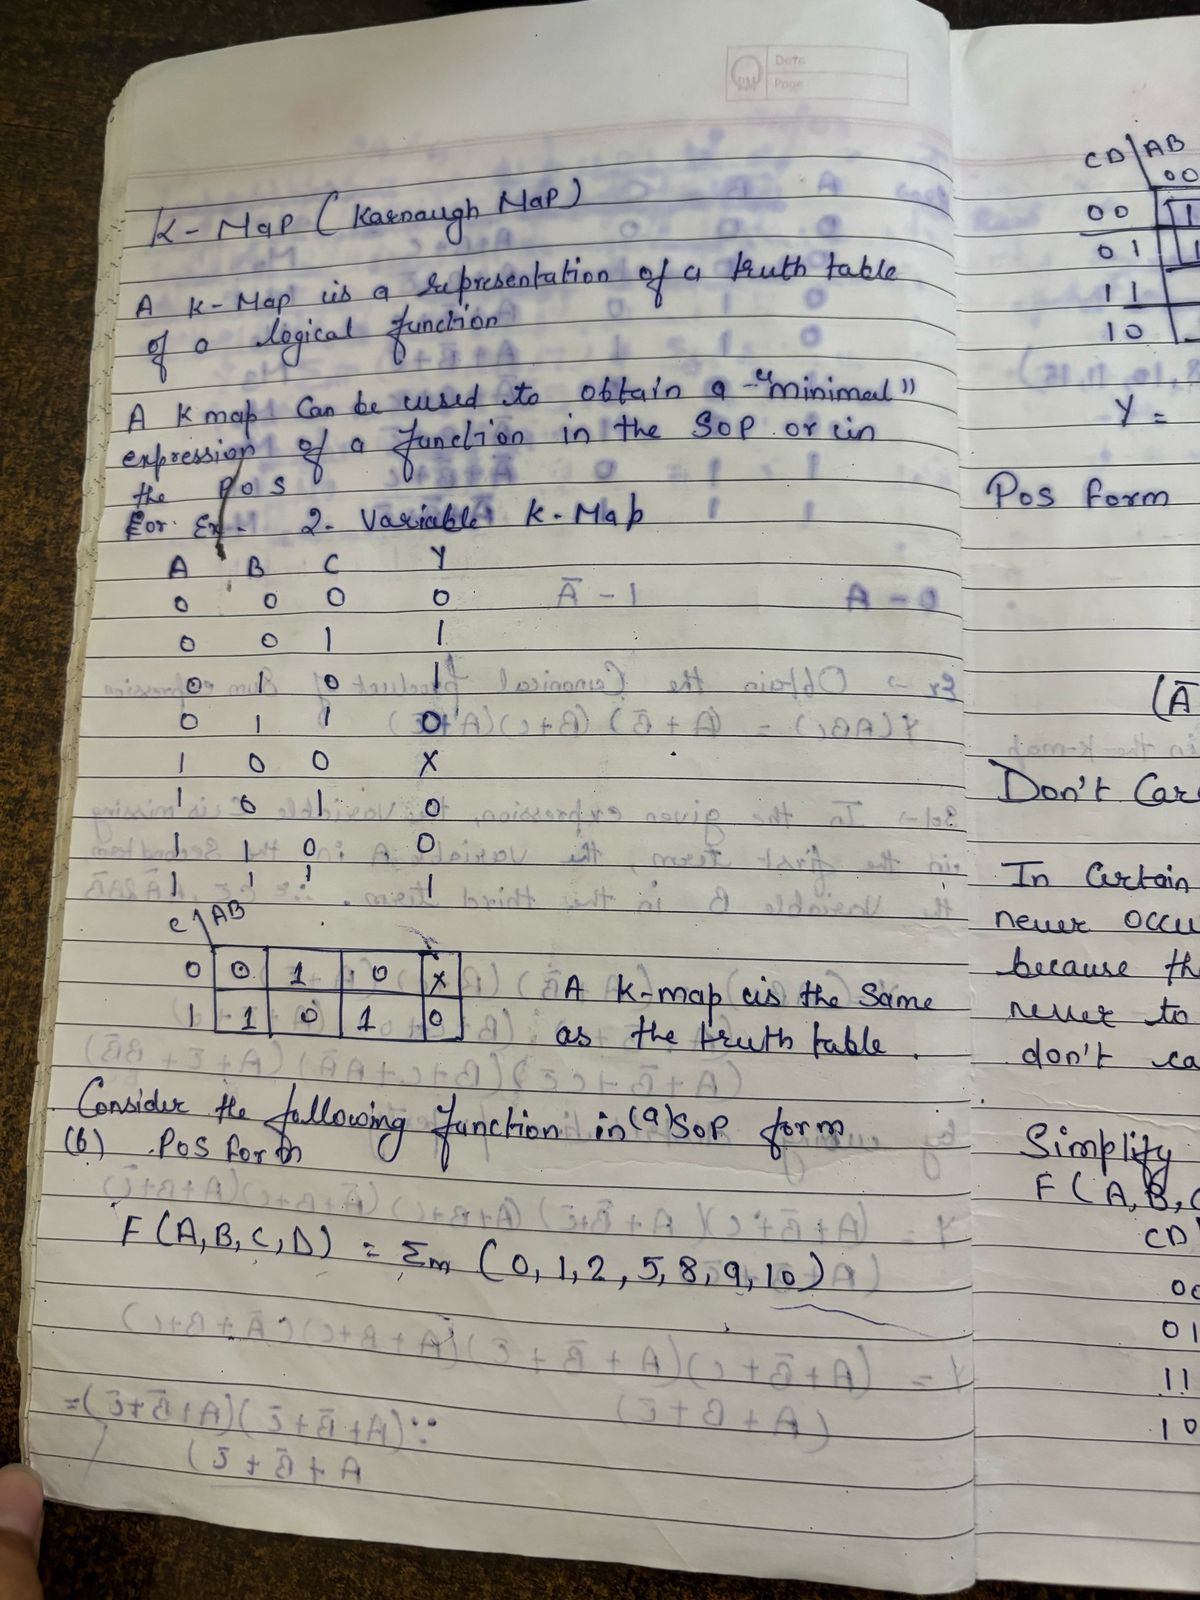 Date
Page
K-Map (Karnaugh Map)
A K-Map is a representation of a truth table
of a logical function
A K map Can be used to obtain a "minimal"
expression of a function in the SOP or in
the POS
For Ex- 2- Variable K-Map
A B C Y
0 0 0 0 Ā - 1 A - 0
0 0 1 1
0 1 0 1
0 1 1 0
1 0 0 X
1 0 1 0
1 1 0 0
1 1 1 1
C\AB
0 0 1 0 X
1 1 0 1 0
A K-map is the Same
as the truth table.
Consider the following function in (a) SOP form
(b) POS form
F(A,B,C,D) = Σm (0,1,2,5,8,9,10)
CD\AB
00
00 1
01 1
11
10
Y =
Pos form
(Ā
Don't Car
In Certain
never occu
because th
never to
don't ca
Simplify
F(A,B,C
CD
00
01
11
10